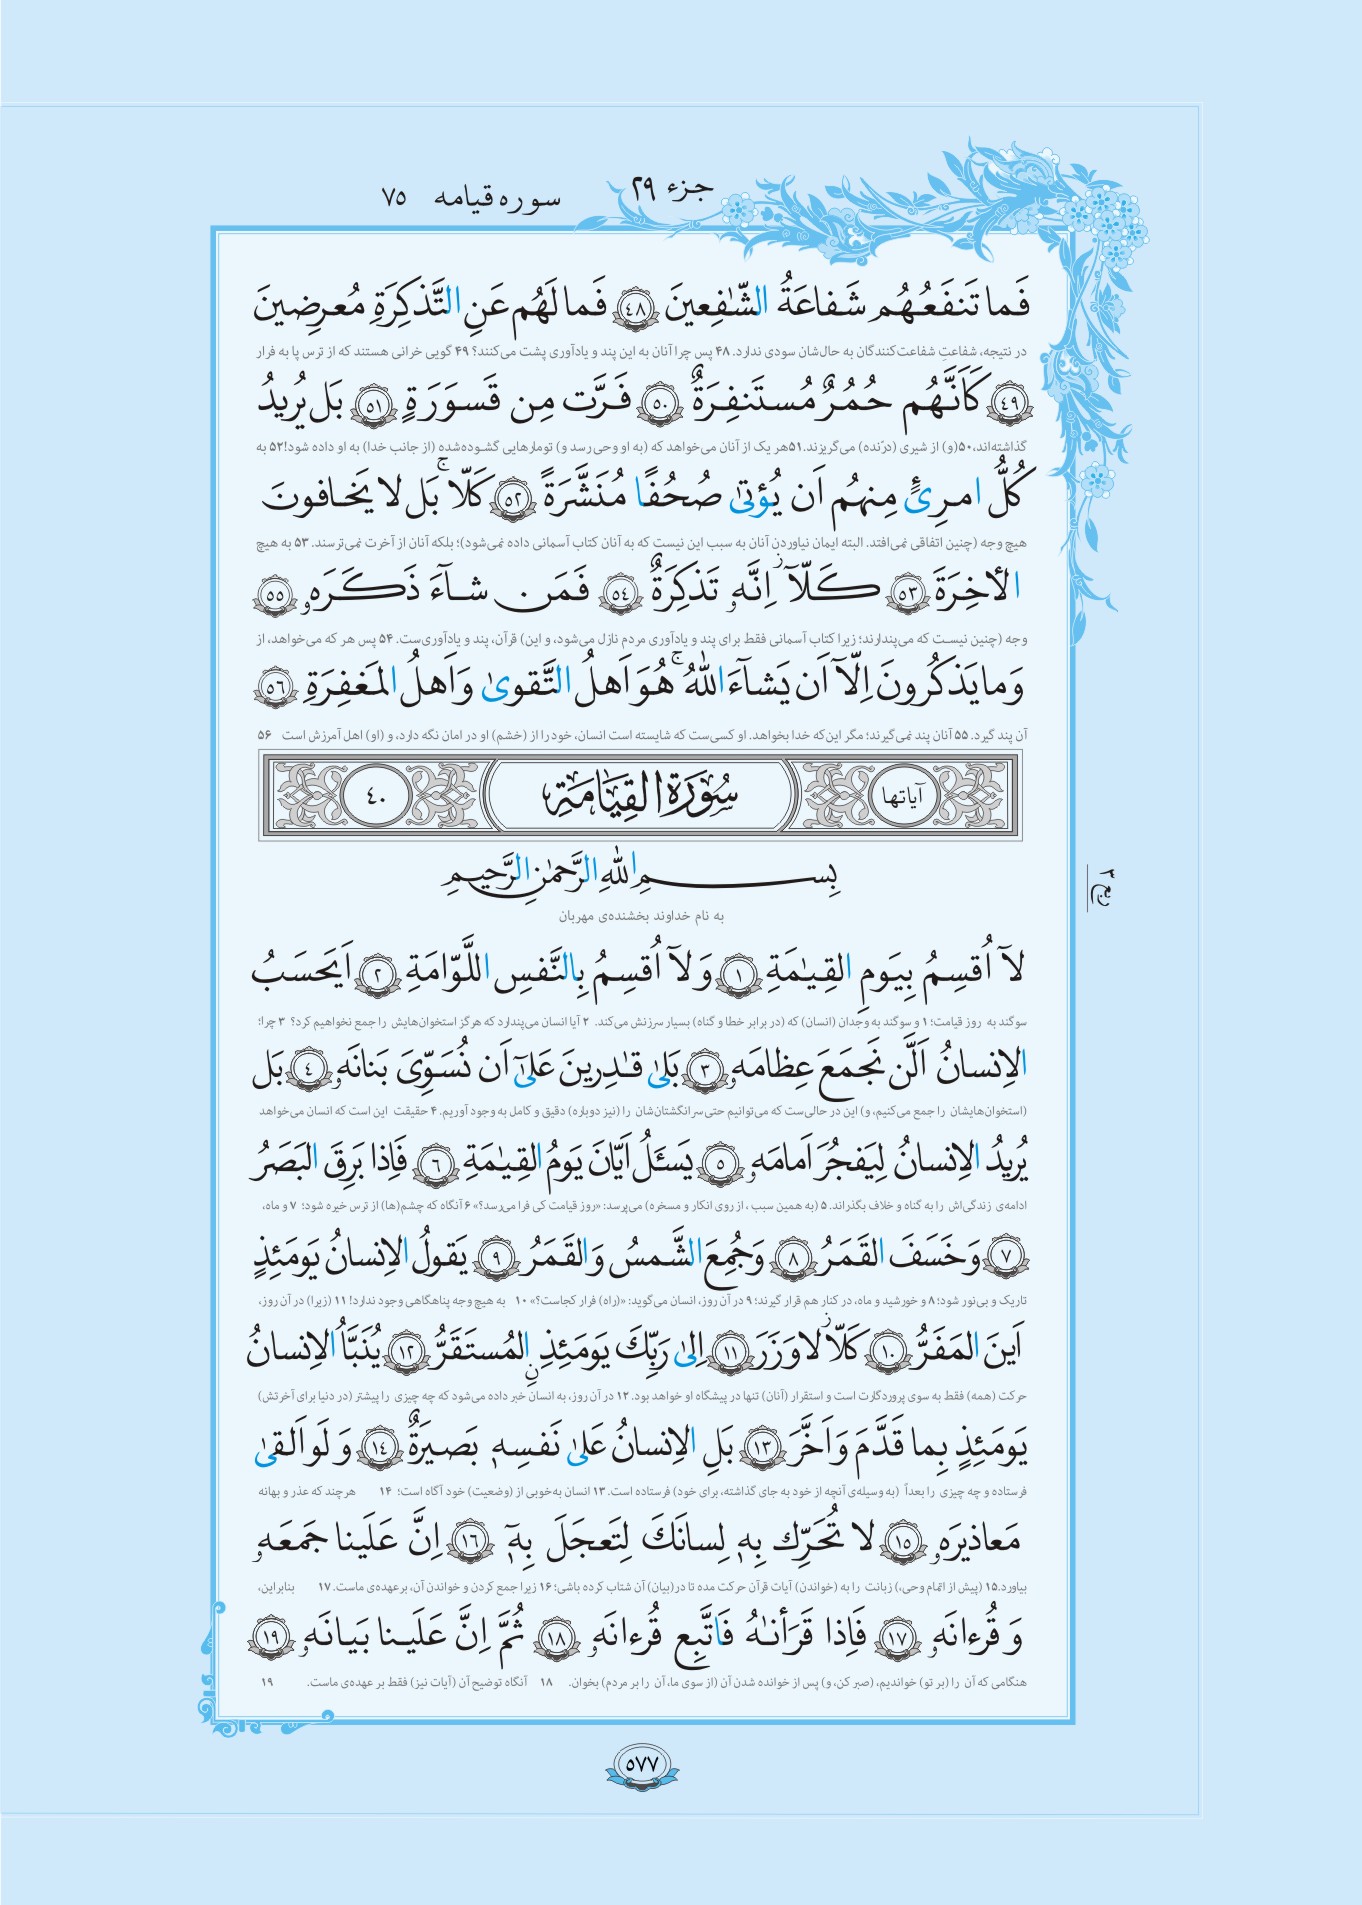 جزء ۲۹
سوره قیامه ۷۵
فَما تَنفَعُهُم شَفاعَةُ الشّٰفِعينَ ﴿٤٨﴾ فَما لَهُم عَنِ التَّذكِرَةِ مُعرِضينَ
در نتیجه، شفاعتِ شفاعت‌کنندگان به حال‌شان سودی ندارد. ۴۸ پس چرا آنان به این پند و یادآوری پشت می‌کنند؟ ۴۹ گویی خرانی هستند که از ترس پا به فرار
﴿٤٩﴾ كَاَنَّهُم حُمُرٌ مُستَنفِرَةٌ ﴿٥٠﴾ فَرَّت مِن قَسوَرَةٍ ﴿٥١﴾ بَل يُريدُ
گذاشته‌اند، ۵۰ (و) از شیری (درّنده) می‌گریزند. ۵۱ هر یک از آنان می‌خواهد که (به او وحی رسد و) تومارهایی گشوده‌شده (از جانب خدا) به او داده شود! ۵۲ به
كُلُّ امرِئٍ مِنهُم اَن يُؤتىٰ صُحُفًا مُنَشَّرَةً ﴿٥٢﴾ كَلّا ۚ بَل لا يَخافونَ
هیچ وجه (چنین اتفاقی نمی‌افتد. البته ایمان نیاوردن آنان به سبب این نیست که به آنان کتاب آسمانی داده نمی‌شود)؛ بلکه آنان از آخرت نمی‌ترسند. ۵۳ به هیچ
الأخِرَةَ ﴿٥٣﴾ كَلّآ اِنَّهٗ تَذكِرَةٌ ﴿٥٤﴾ فَمَن شآءَ ذَكَرَهٗ ﴿٥٥﴾
وجه (چنین نیست که می‌پندارند؛ زیرا کتاب آسمانی فقط برای پند و یادآوری مردم نازل می‌شود، و این) قرآن، پند و یادآوری‌ست. ۵۴ پس هر که می‌خواهد، از
وَ ما يَذكُرونَ اِلّآ اَن يَشآءَ اللّٰهُ ۚ هُوَ اَهلُ التَّقوىٰ وَ اَهلُ المَغفِرَةِ ﴿٥٦﴾
آن پند گیرد. ۵۵ آنان پند نمی‌گیرند؛ مگر این‌که خدا بخواهد. او کسی‌ست که شایسته است انسان، خود را از (خشم) او در امان نگه دارد، و (او) اهل آمرزش است ۵۶
آیاتها سُورَةُ القِيَامَةِ ٤٠
بِسمِ اللّٰهِ الرَّحمٰنِ الرَّحيمِ
ربع ۳
به نام خداوند بخشنده‌ی مهربان
لآ اُقسِمُ بِيَومِ القِيٰمَةِ ﴿١﴾ وَ لآ اُقسِمُ بِالنَّفسِ اللَّوّامَةِ ﴿٢﴾ اَيَحسَبُ
سوگند به روز قیامت؛ ۱ و سوگند به وجدان (انسان) که (در برابر خطا و گناه) بسیار سرزنش می‌کند. ۲ آیا انسان می‌پندارد که هرگز استخوان‌هایش را جمع نخواهیم کرد؟ ۳ چرا؛
الاِنسانُ اَلَّن نَجمَعَ عِظامَهٗ ﴿٣﴾ بَلىٰ قٰدِرينَ عَلىٰٓ اَن نُسَوِّىَ بَنانَهٗ ﴿٤﴾ بَل
(استخوان‌هایشان را جمع می‌کنیم، و) این در حالی‌ست که می‌توانیم حتی سر انگشتان‌شان را (نیز دوباره) دقیق و کامل به وجود آوریم. ۴ حقیقت این است که انسان می‌خواهد
يُريدُ الاِنسانُ لِيَفجُرَ اَمامَهٗ ﴿٥﴾ يَسـَٔلُ اَيّانَ يَومُ القِيٰمَةِ ﴿٦﴾ فَاِذا بَرِقَ البَصَرُ
ادامه‌ی زندگی‌اش را به گناه و خلاف بگذراند. ۵ (به همین سبب، از روی انکار و مسخره) می‌پرسد: «روز قیامت کی فرا می‌رسد؟» ۶ آنگاه که چشم(ها) از ترس خیره شود؛ ۷ و ماه،
﴿٧﴾ وَ خَسَفَ القَمَرُ ﴿٨﴾ وَ جُمِعَ الشَّمسُ وَ القَمَرُ ﴿٩﴾ يَقولُ الاِنسانُ يَومَئِذٍ
تاریک و بی‌نور شود؛ ۸ و خورشید و ماه، در کنار هم قرار گیرند؛ ۹ در آن روز، انسان می‌گوید: «(راه) فرار کجاست؟» ۱۰ به هیچ وجه پناهگاهی وجود ندارد! ۱۱ (زیرا) در آن روز،
اَينَ المَفَرُّ ﴿١٠﴾ كَلّا لا وَزَرَ ﴿١١﴾ اِلىٰ رَبِّكَ يَومَئِذٍ المُستَقَرُّ ﴿١٢﴾ يُنَبَّأُ الاِنسانُ
حرکت (همه) فقط به سوی پروردگارت است و استقرار (آنان) تنها در پیشگاه او خواهد بود. ۱۲ در آن روز، به انسان خبر داده می‌شود که چه چیزی را پیشتر (در دنیا برای آخرتش)
يَومَئِذٍ بِما قَدَّمَ وَ اَخَّرَ ﴿١٣﴾ بَلِ الاِنسانُ عَلىٰ نَفسِهٖ بَصيرَةٌ ﴿١٤﴾ وَ لَو اَلقىٰ
فرستاده و چه چیزی را بعداً (به وسیله‌ی آنچه از خود به جای گذاشته، برای خود) فرستاده است. ۱۳ انسان به‌خوبی از (وضعیت) خود آگاه است؛ ۱۴ هرچند که عذر و بهانه
مَعاذيرَهٗ ﴿١٥﴾ لا تُحَرِّك بِهٖ لِسانَكَ لِتَعجَلَ بِهٖٓ ﴿١٦﴾ اِنَّ عَلَينا جَمعَهٗ
بیاورد. ۱۵ (پیش از اتمام وحی،) زبانت را به (خواندن) آیات قرآن حرکت مده تا در (بیان) آن شتاب کرده باشی؛ ۱۶ زیرا جمع کردن و خواندن آن، بر عهده‌ی ماست. ۱۷ بنابراین،
وَ قُرءانَهٗ ﴿١٧﴾ فَاِذا قَرَأنٰهُ فَاتَّبِع قُرءانَهٗ ﴿١٨﴾ ثُمَّ اِنَّ عَلَينا بَيانَهٗ ﴿١٩﴾
هنگامی که آن را (بر تو) خواندیم، (صبر کن، و) پس از خوانده شدن آن (از سوی ما، آن را بر مردم) بخوان. ۱۸ آنگاه توضیح آن (آیات نیز) فقط بر عهده‌ی ماست. ۱۹
۵۷۷